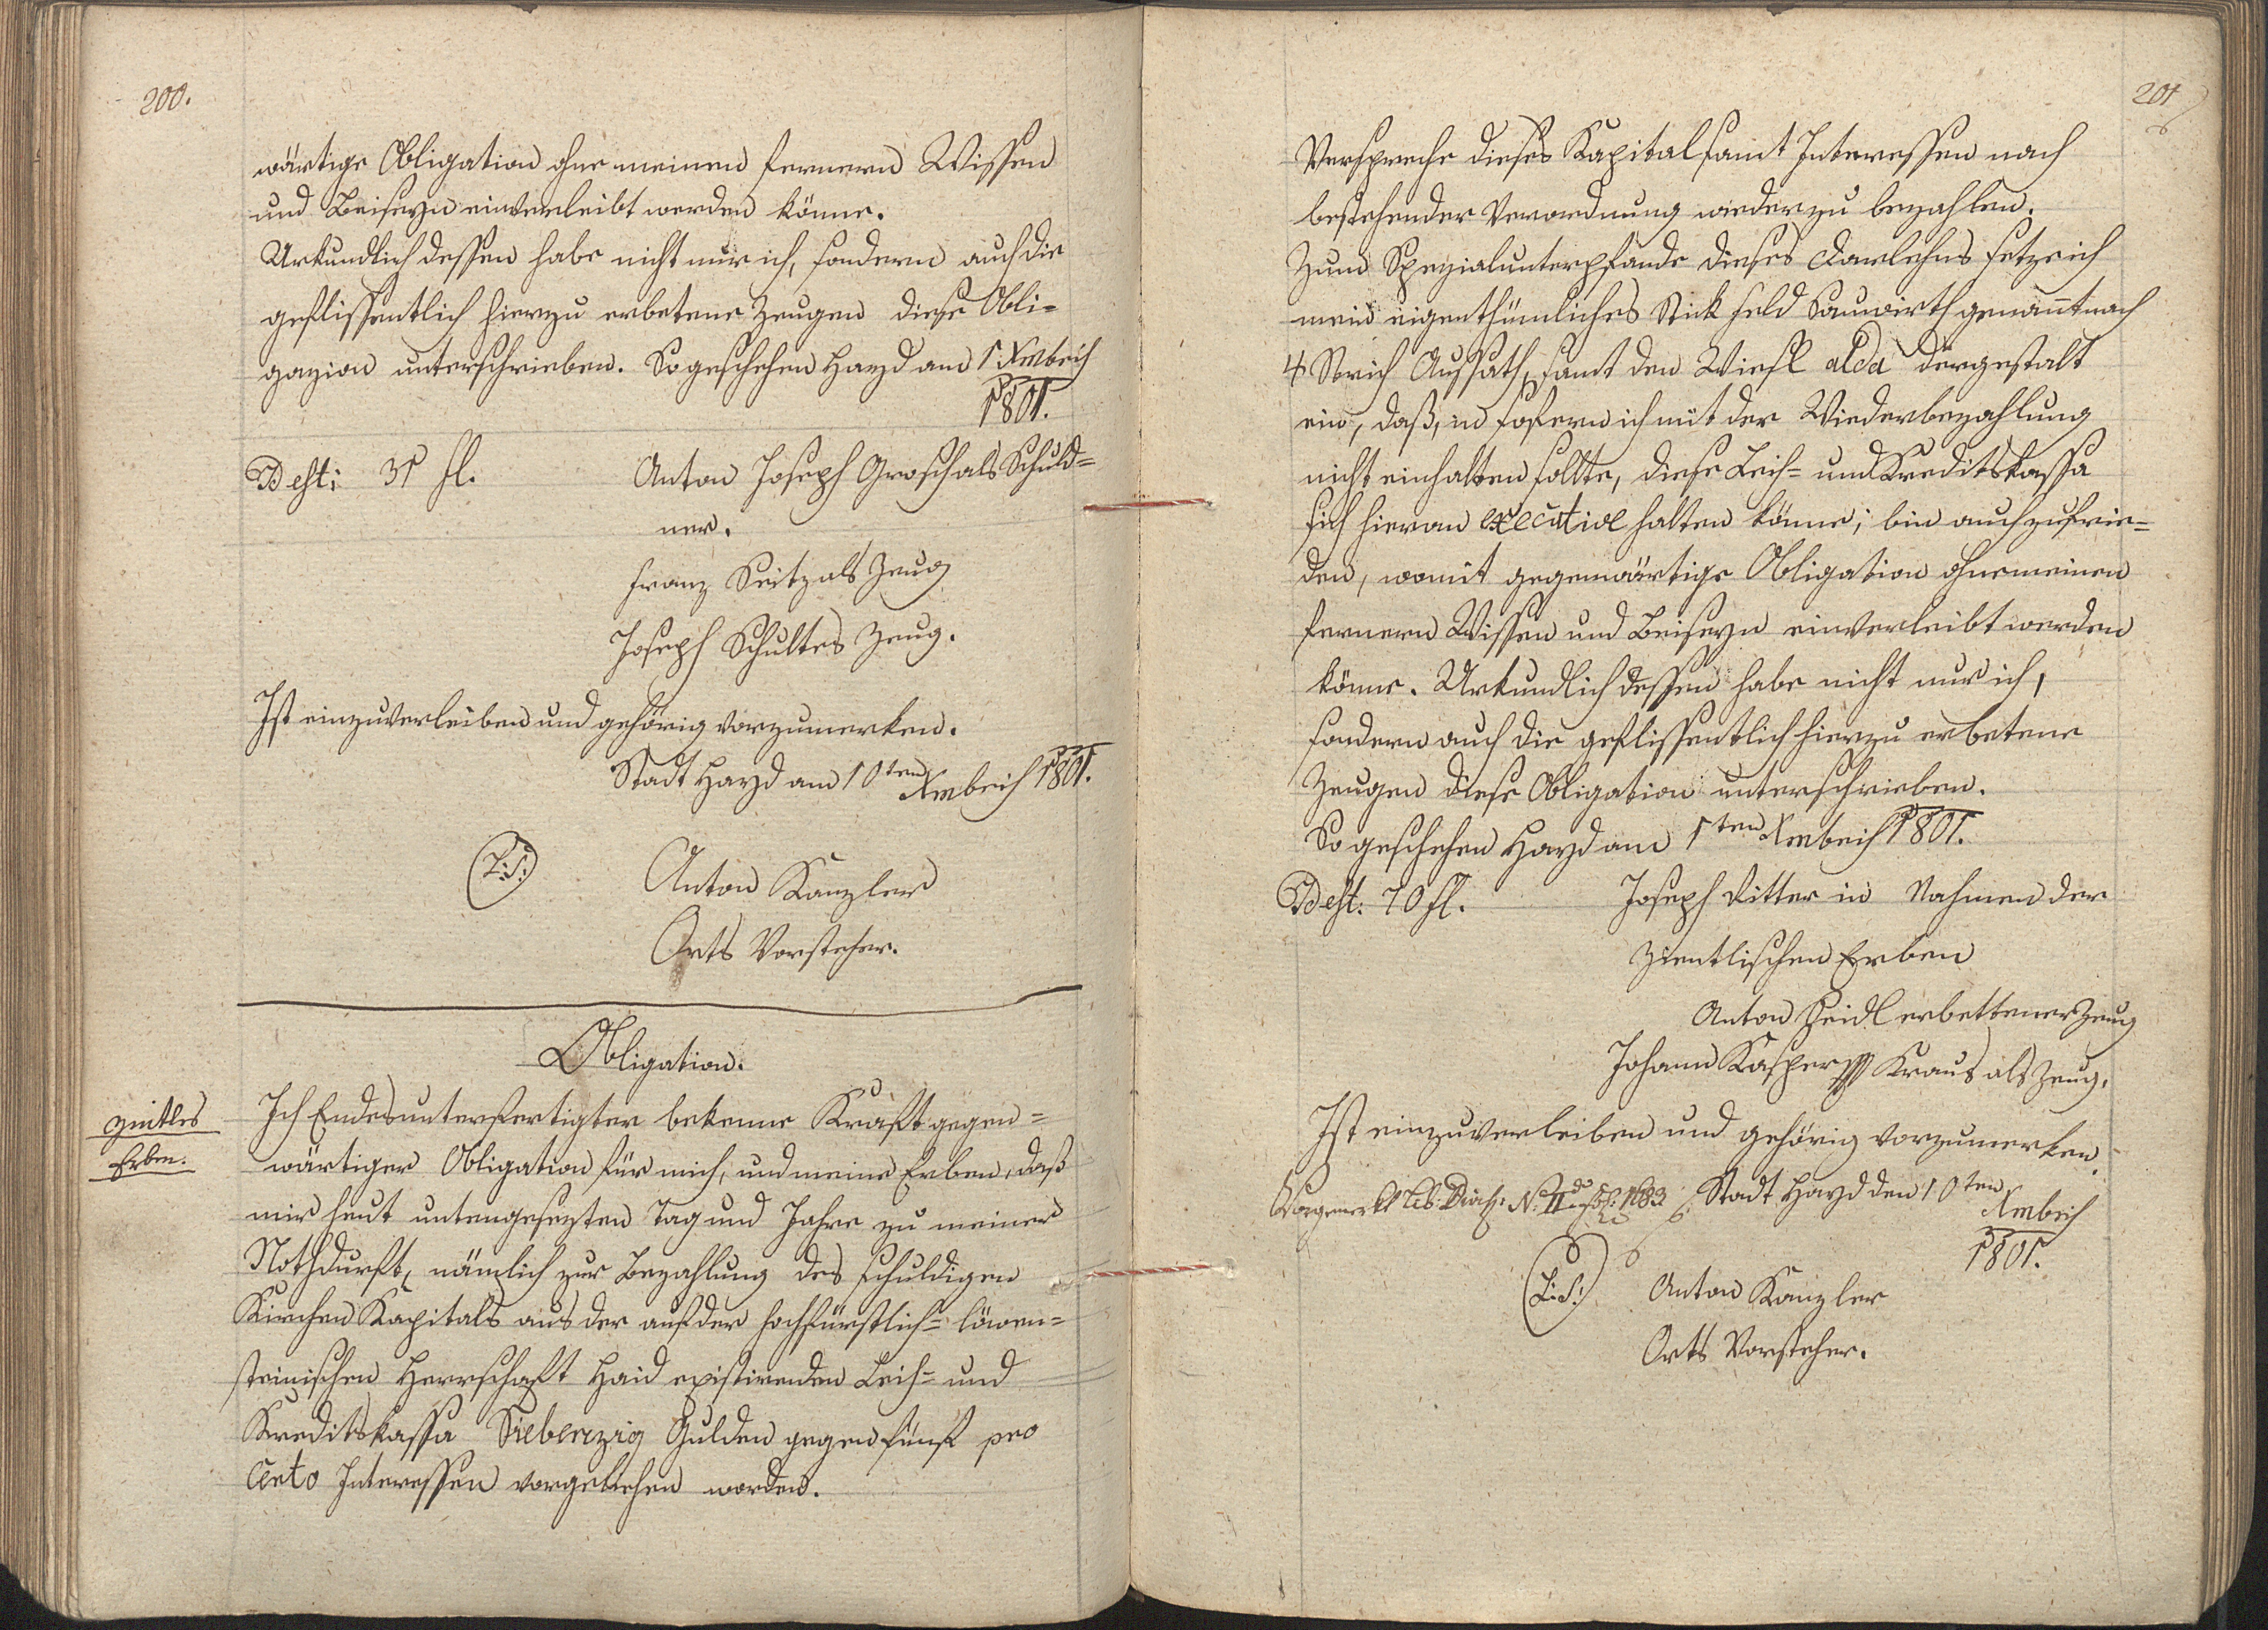 200.
wärtige Obligation ohne meinen fernern Wissen
und Beiseyn einverleibt werden könne.
Urkundlich dessen habe nicht nur ich, sondern auch die
geflissentlich hierzu erbetene Zeugen diese Obli-
gazion unterschrieben. So geschehen Hayd am 1 Xmbrich
1801.
Dest: 31 fl. Anton Joseph Grosch als Schuld-
ner.
Franz Seitz als Zeug
Joseph Schultes Zeug.
Ist einzuverleiben und gehörig vorzumerken.
Stadt Hayd am 10ten Xmbrich 1801.
(L:S:) Anton Kanzler
Orts Vorsteher.
Obligation.
Erben.
Ich Endesunterfertigter bekenne Kraft gegen-
wärtiger Obligation für mich, und meine Erben, daß
mir heut untengesezten Tag und Jahre zu meiner
Nothdurft, nämlich zur Bezahlung des schuldigen
Kirchen Kapitals aus der auf der hochfürstlich- löwen-
steinischen Herrschaft Haid existirenden Leih- und
Kreditskassa Siebenzig Gulden gegen fünf pro
Cento Interessen vorgeliehen worden.
201
Verspreche dieses Kapital samt Interessen nach
bestehender Verordnung wieder zu bezahlen.
Zum Spezialunterpfande dieses Darlehns setze ich
mein eigenthümliches Stick Feld Sauwirth genannt nach
4 Strich Aussath, samt den Wiesl alda dergestalt
ein, daß, in sofern ich mit der Wiederbezahlung
nicht einhalten sollte, diese Leih- und Kreditskassa
sich hieran executive halten könne; bin auch zufrie-
den, womit gegenwärtige Obligation ohne meinen
fernern Wissen und Beiseyn einverleibt werden
könne. Urkundlich dessen habe nicht nur ich,
sondern auch die geflissentlich hierzu erbetene
Zeugen diese Obligation unterschrieben.
So geschehen Hayd am 1ten Xmbrich 1801.
Dest: 70 fl. Joseph Ritter in Nahmen der
Zientlischen Erben
Anton Heidl erbettener Zeug
Johann Kasper Kraus als Zeug.
Ist einzuverleiben und gehörig vorzumerken.
Vorgemerkt Lib: N: II do fol: 1683 Stadt Hayd den 10ten
Xmbrich
1801.
(L:S:) Anton Kanzler
Orts Vorsteher.